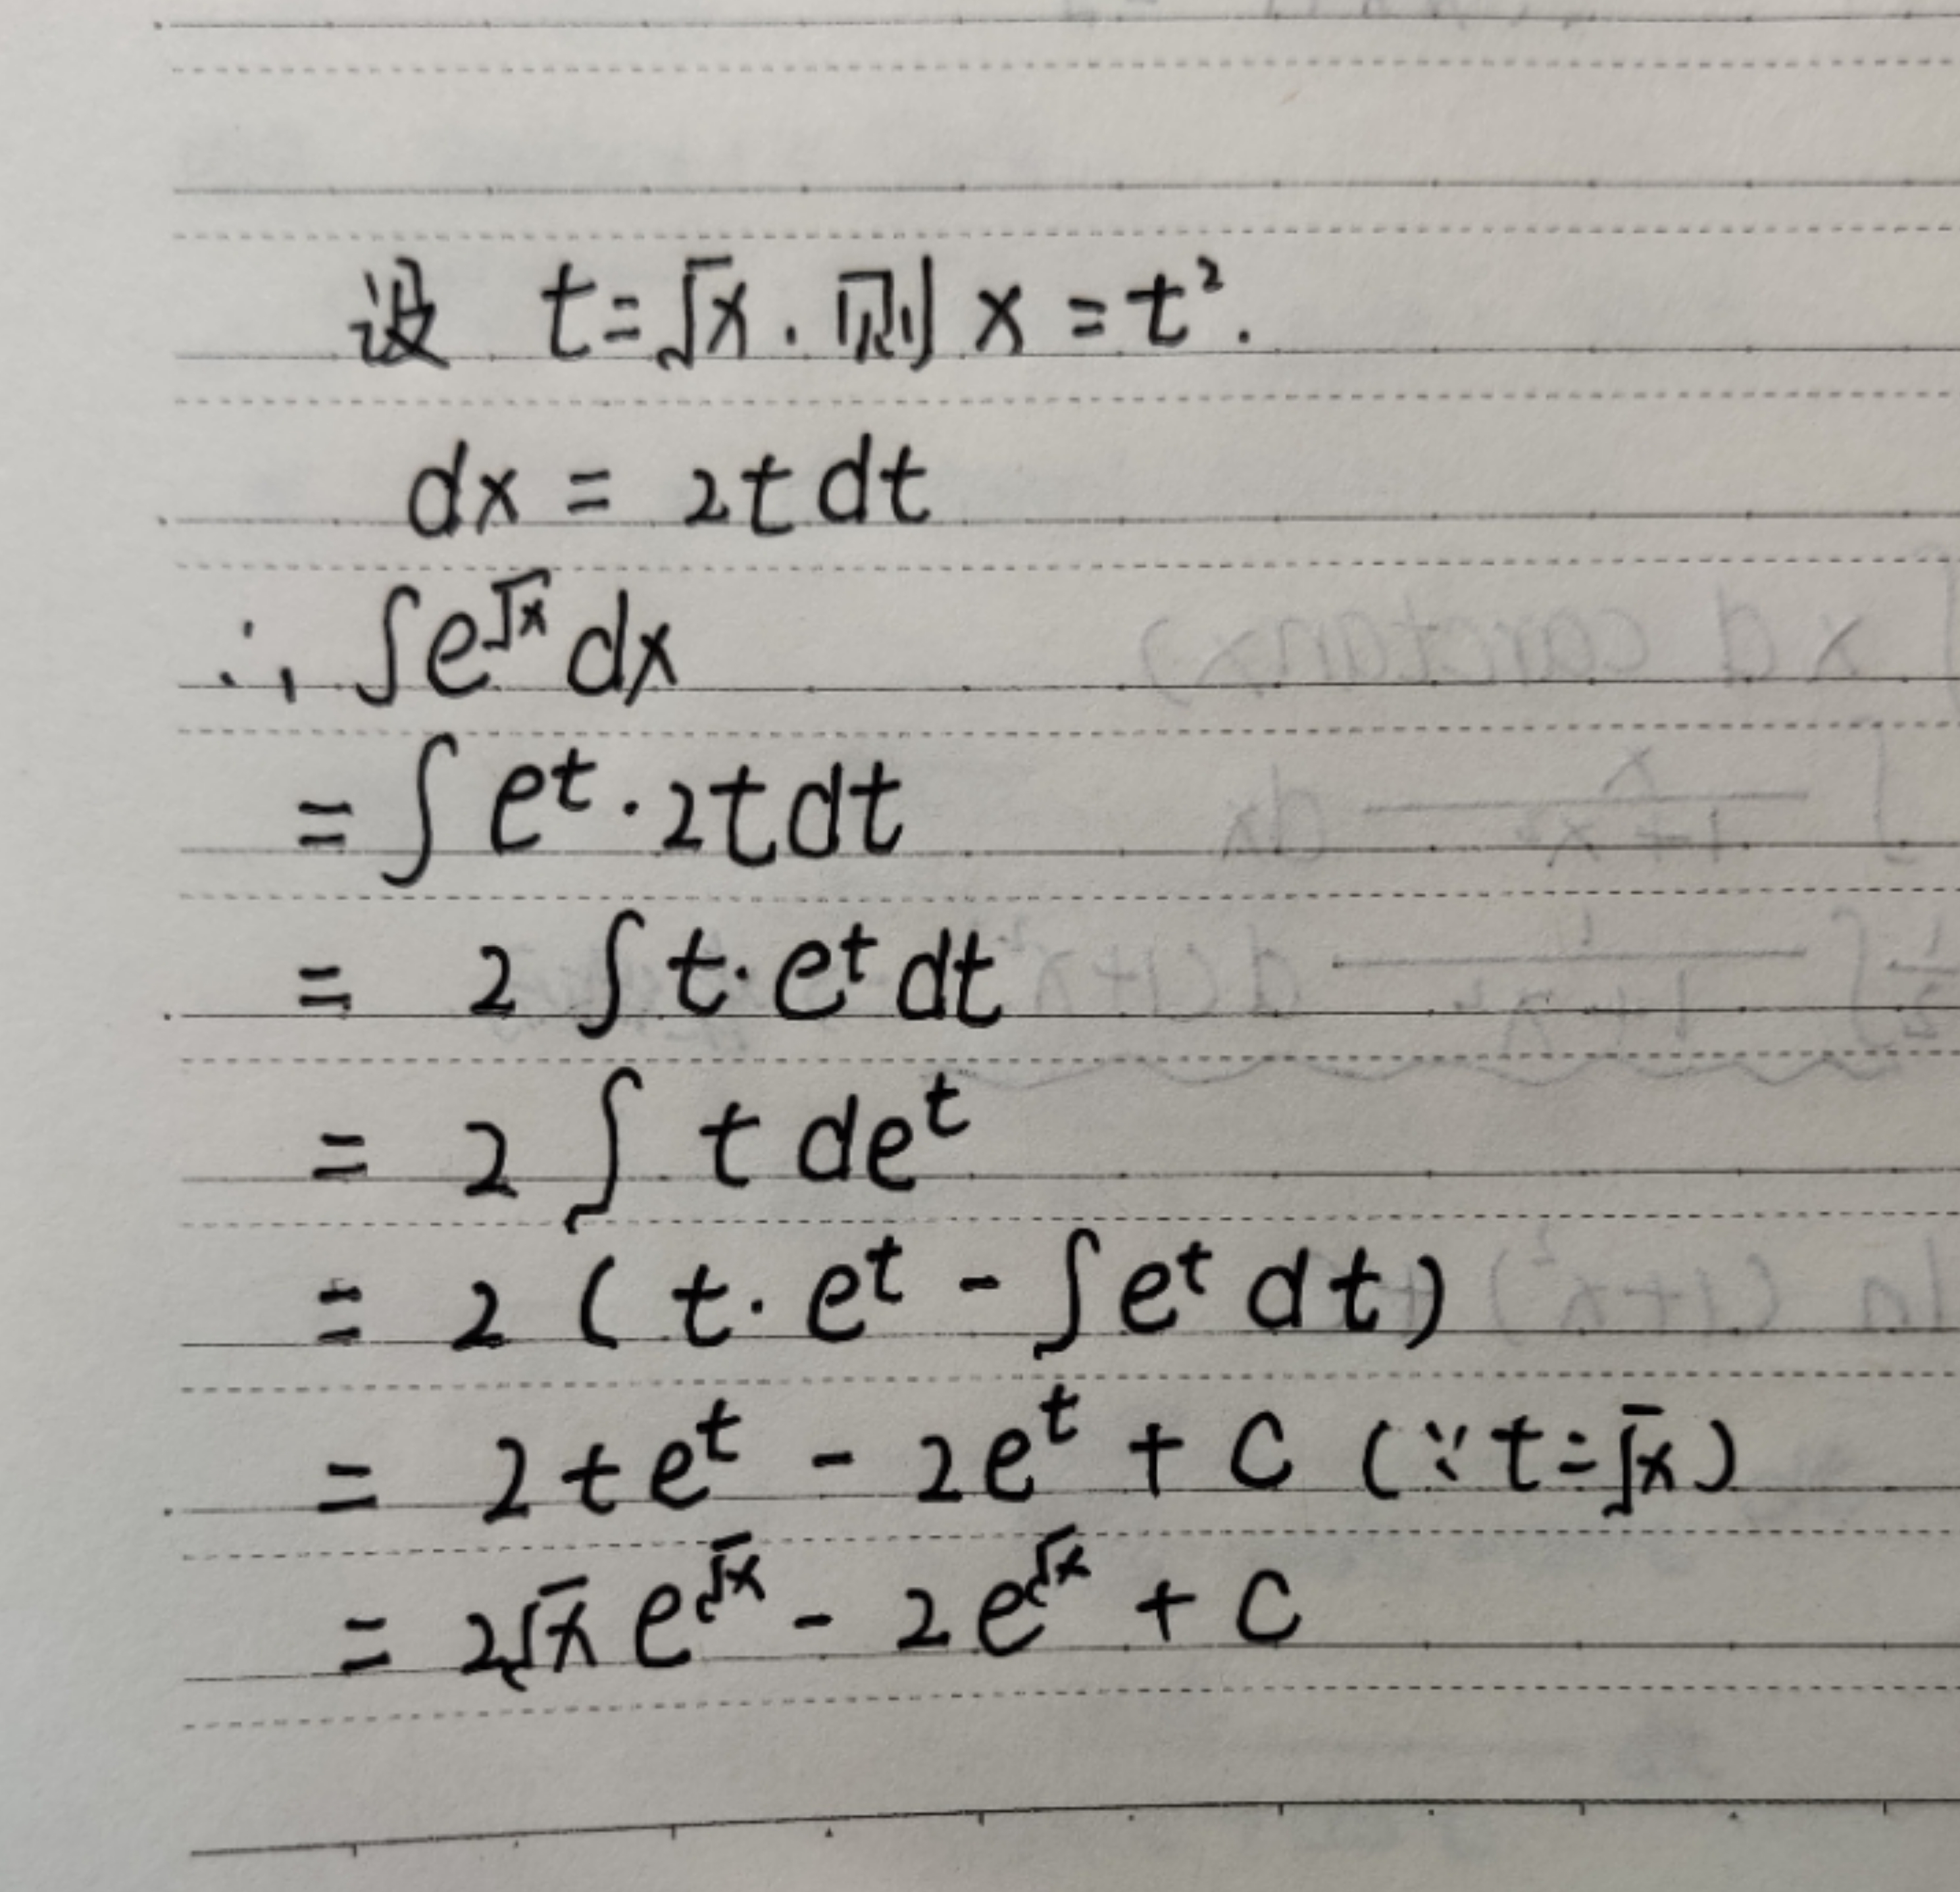 设 t=√x. 则 x=t².
dx = 2t dt
∴ ∫e^√x dx
= ∫ e^t · 2t dt
= 2 ∫ t · e^t dt
= 2 ∫ t de^t
= 2 ( t · e^t - ∫e^t dt)
= 2te^t - 2e^t + C (∵ t=√x)
= 2√x e^√x - 2e^√x + C